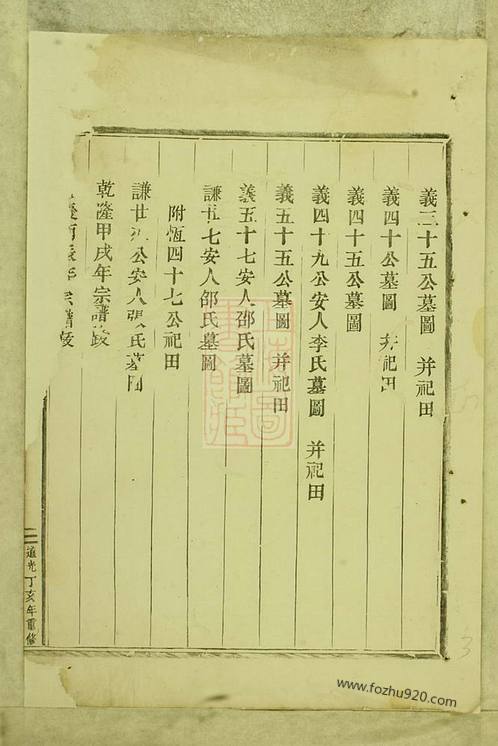 義三十五公墓圖 并祀田
義四十公墓圖 并祀田
義四十五公墓圖
義四十九公安人李氏墓圖 并祀田
義五十五公墓圖 并祀田
義五十七安人邵氏墓圖
謙廿七安人邵氏墓圖
附恆四十七公祀田
謙廿 公安人張氏墓圖
乾隆甲戌年宗譜跋
年宗譜跋
道光丁亥年重修
3
www.fozhu920.com